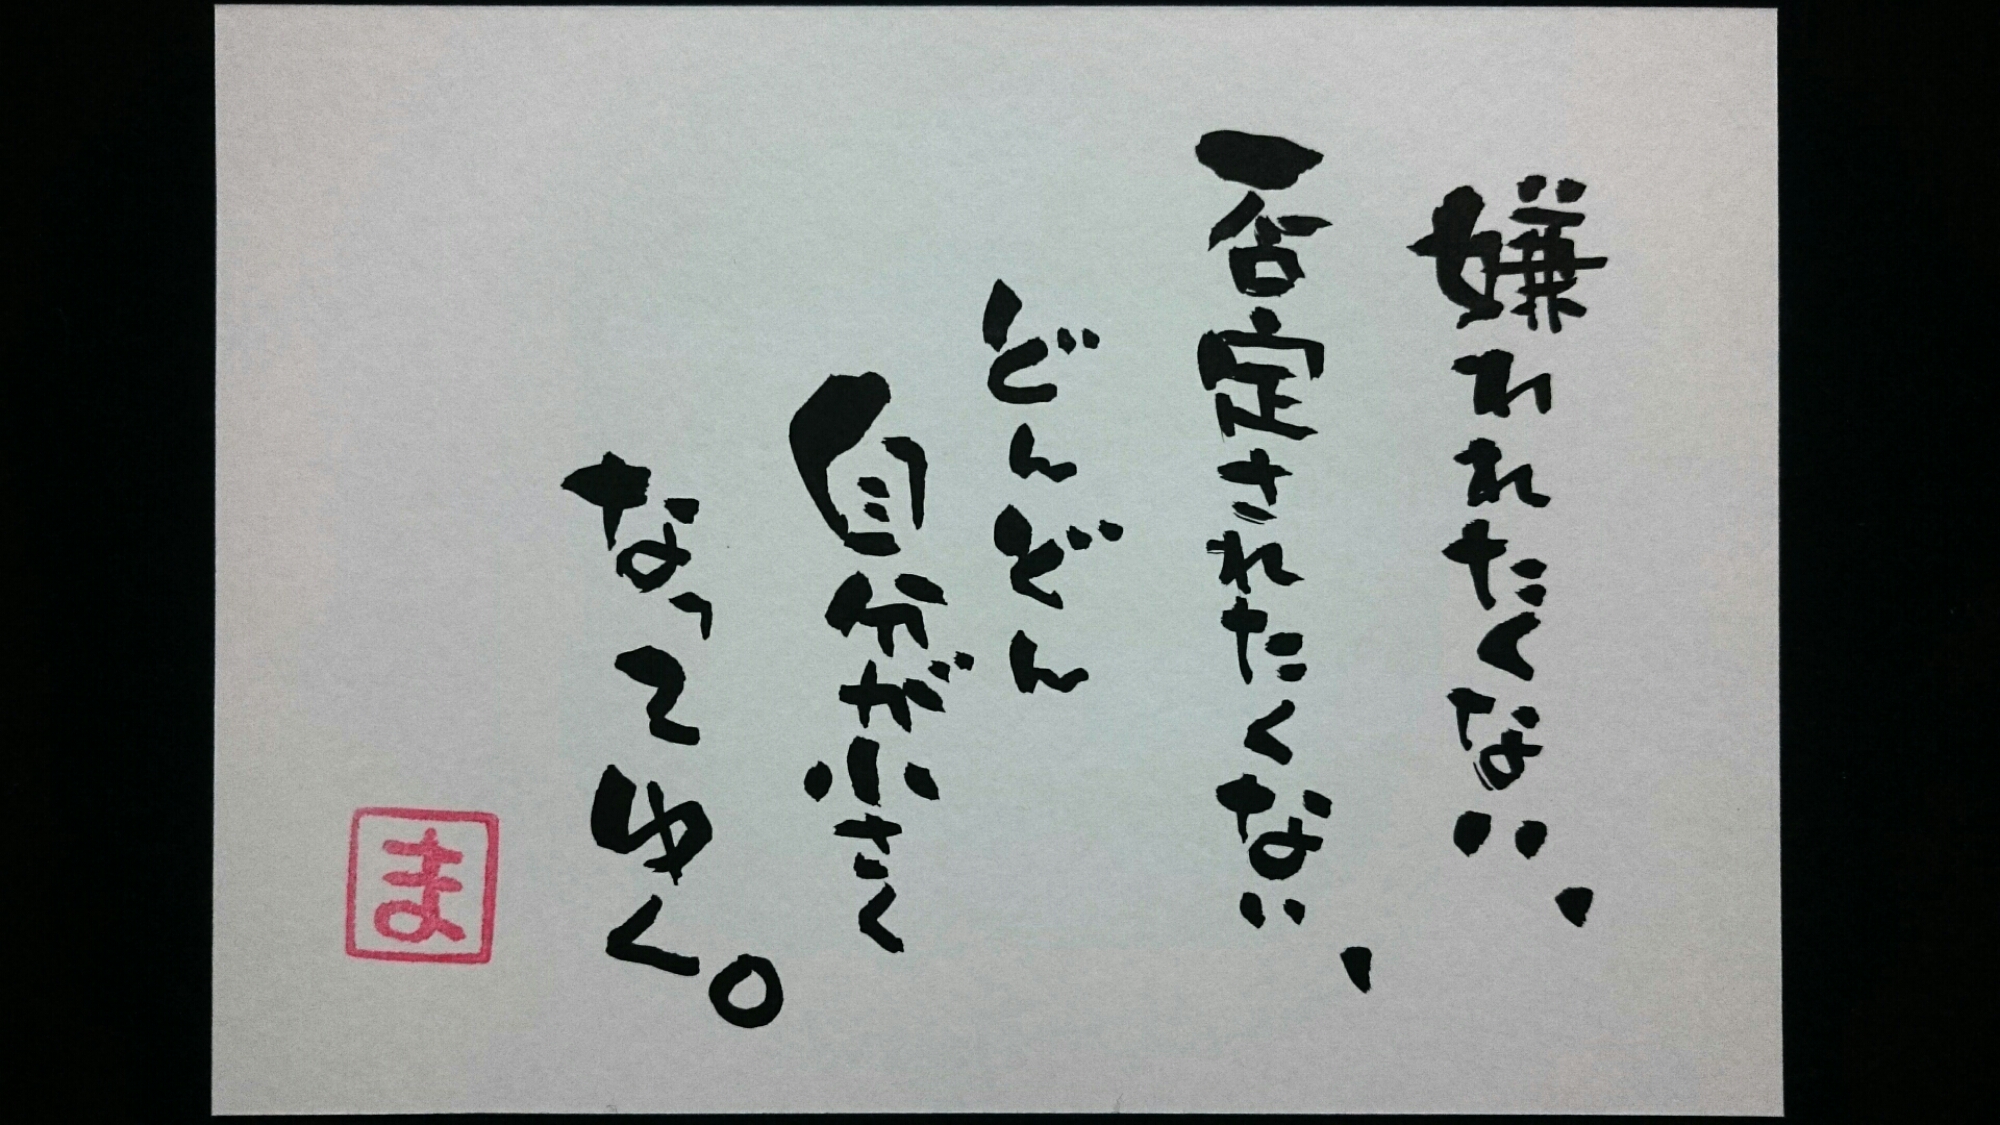 嫌われたくない、
否定されたくない、
どんどん
自分が小さく
なってゆく。
ま